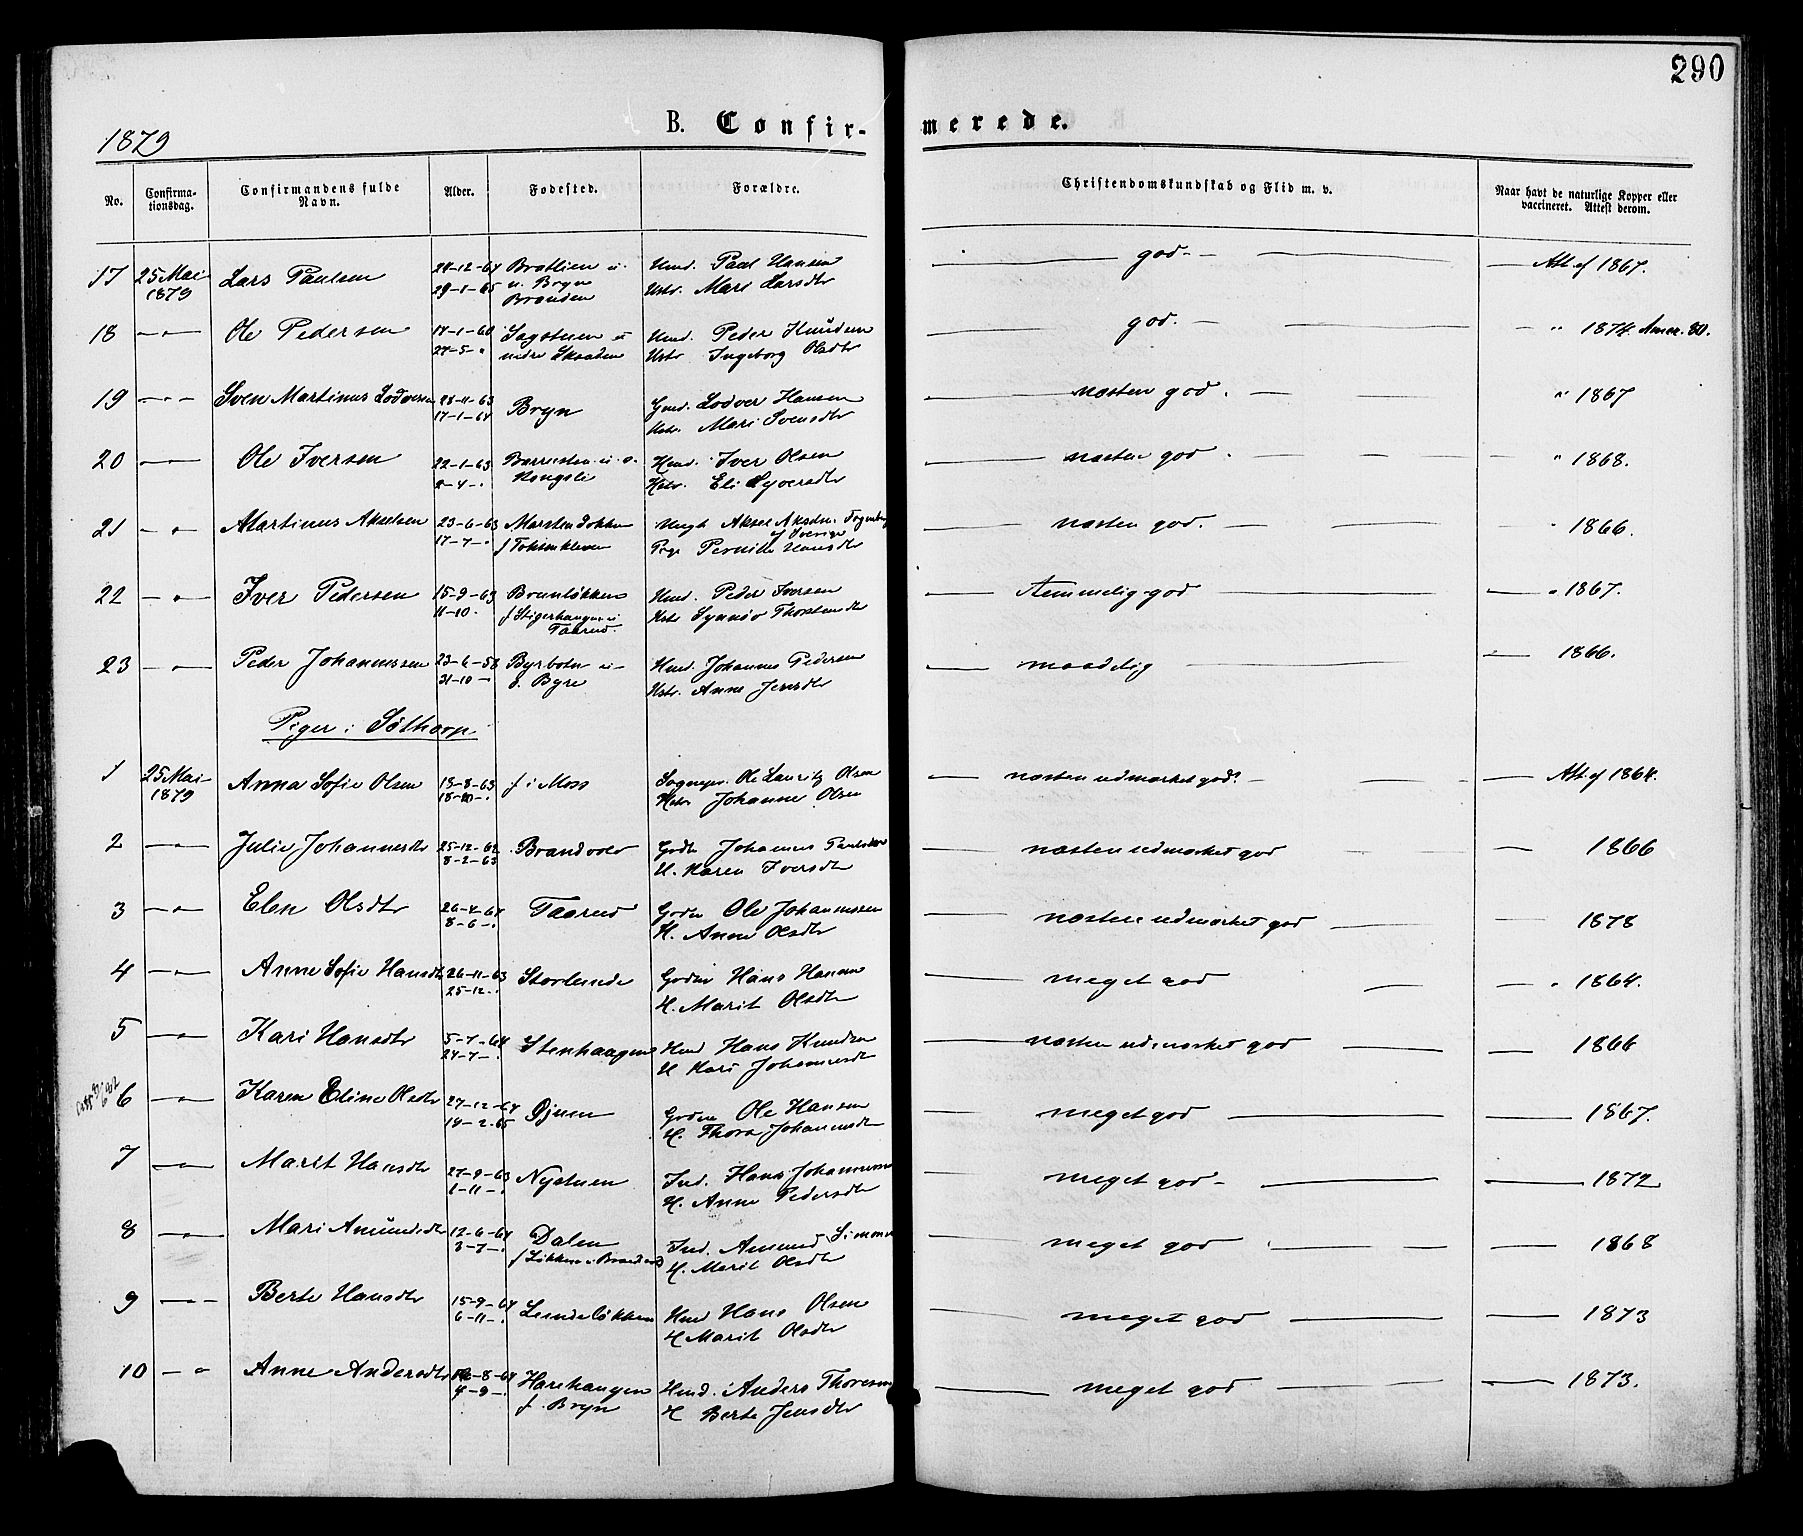 290
1879
B. Confirmerede.
No. Confirmationsdag. Confirmandens fulde Navn. Alder. Fodested. Forældre. Christendomskundskab og Flid m. v. Naar havt de naturlige Kopper eller vaccineret. Attest derom.
17 25 Mai 1879 Lars Paulsen 28-12-64 29-1-65 Bratlien u. n. Bryn Branden Hmd. Paul Hansen Hstr. Mari Larsdtr god Att. af 1867.
18 Ole Pedersen 17-1-60 27-5-" Sagstuen u nedre Hmd. Peder Knudsen Hstr Ingeborg Olsdtr god. " 1874. 80.
19 Sven Martinus Lodversen 28-11-63 17-1-64 Bryn Gmd. Lodver Hansen Hstr. Mari Svensdtr næsten god. " 1867
20 Ole Iversen 22-1-63 Hmd. Iver Olsen Hstr. Eli Syversdtr næsten god " 1868.
21 Martinus Akselsen 23-6-63 17-7-" Ungk Aksel af Sverige Pige Pernille Hansdtr næsten god. " 1866.
22 Iver Pedersen 15-9-63 11-10. Brunløkken f. Stigerhaugen u Taarud. Hmd. Peder Iversen Hstr Synnøv Thorstensdtr temmelig god " 1867.
23 Peder Johannessen 23-6-58 31-10- Byrboten u ø. Byre Hmd. Johannes Pedersen Hstr. Anne Jensdtr maadelig 1866.
Piger i Søthorp
1 25 Mai 1879 Anna Sofie Olsen 13-8-63 18-10-. f. i Moss Sognepr. Ole Lauritz Olsen Hstr Johanne Olsen næsten udmærket god. Att. af 1864.
2 Julie Johannesdtr 25-12-62 8-2-63 Brandvold Johannes Paulsen H. Karen Iversdtr næsten udmærket god 1866
3 Elen Olsdtr 26-4-64 8-6-. Taarud Gmdr Ole Johannessen H. Anne Olsdtr næsten udmærket god 1878
4 Anne Sofie Hansdtr 26-11-63 25-12-. Storlunde Hans Hansen H. Marit Olsdtr meget god " 1864.
5 Kari Hansdtr 5-7-64 24-7-. Stenhaugen Hmd Hans Knudsen H Kari Johannesdtr næsten udmærket god 1866
6 Karen Eline Olsdtr 27-12-64 14-2-65 Ole Hansen H. Thora Johannesdtr meget god 1867.
7 Marit Hansdtr 27-9-63 1-11-. Nystuen Ind. Hans Johannessen H. Anne Pedersdtr meget god 1872
8 Mari Amundsdtr 12-6-64 3-7-. Dalen f Løkken u Brandvold Ind. Amund Simensen H. Marit Olsdtr meget god 1868
9 Berte Hansdtr 15-9-64 6-11-. Lundeløkken Hmd Hans Olsen H Marit Olsdtr meget god 1873
10 Anne Andersdtr 8-64 4-9-. Harehaugen f. Bryn Hmd. Anders Thoresen H Berte Jensdtr meget god 1873.